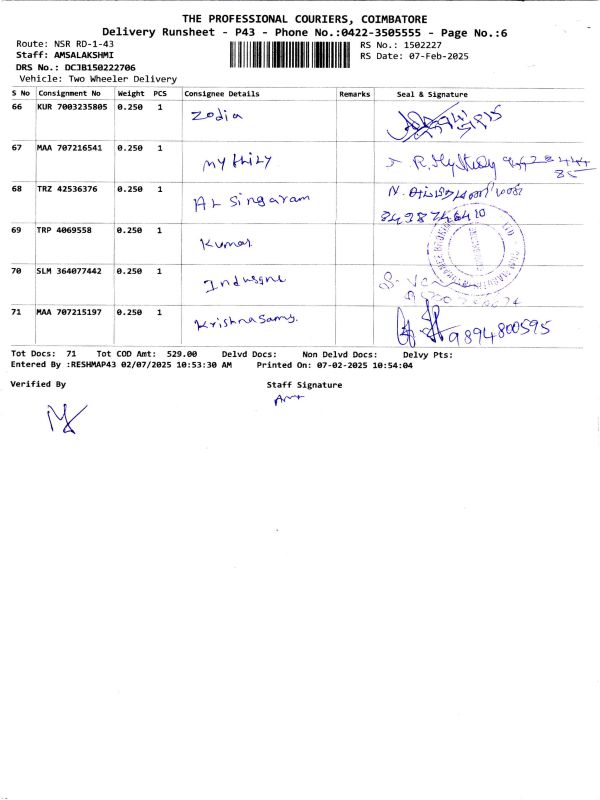 THE PROFESSIONAL COURIERS, COIMBATORE
Delivery Runsheet - P43 - Phone No.:0422-3505555 - Page No.:6
Route: NSR RD-1-43
Staff: AMSALAKSHMI
DRS No.: DCJB150222706
Vehicle: Two Wheeler Delivery
RS No.: 1502227
RS Date: 07-Feb-2025
S No Consignment No Weight PCS Consignee Details Remarks Seal & Signature
66 KUR 7003235805 0.250 1 Zodia
67 MAA 707216541 0.250 1 Mythily
68 TRZ 42536376 0.250 1 AL Singaram
69 TRP 4069558 0.250 1 Kumar
70 SLM 364077442 0.250 1
71 MAA 707215197 0.250 1 Krishnasamy. 9894800595
Tot Docs: 71 Tot COD Amt: 529.00 Delvd Docs: Non Delvd Docs: Delvy Pts:
Entered By :RESHMAP43 02/07/2025 10:53:30 AM Printed On: 07-02-2025 10:54:04
Verified By Staff Signature